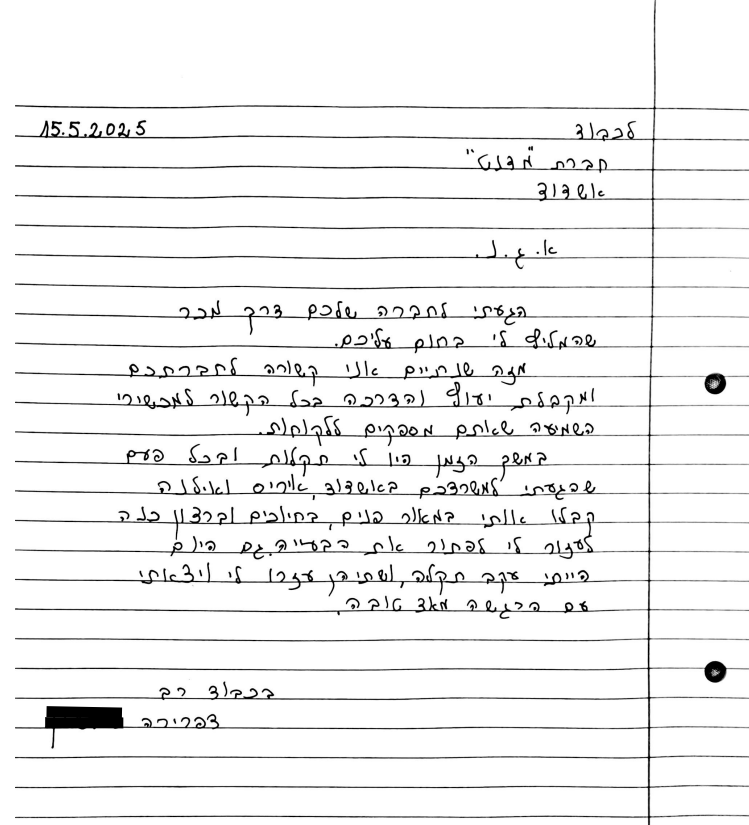 15.5.2025 לכבוד
חברת "מדנט"
אשדוד
א.ג.נ.
הגעתי לחברה שלכם דרך מכר
שהמליץ לי בחום עליכם.
מזה שנתיים אני קשורה לחברתכם
ומקבלת יעוץ והדרכה בכל הקשור למכשירי
השמיעה שאתם מספקים ללקוחות.
במשך הזמן היו לי תקלות ובכל פעם
שהגעתי למשרדכם באשדוד, איריס ואילנה
קבלו אותי במאור פנים, בחיוכים וברצון כנה
לעזור לי לפתור את הבעייה. גם היום
הייתי עקב תקלה, ושתיהן עזרו לי ויצאתי
עם הרגשה מאד טובה.
בכבוד רב
צפרירה